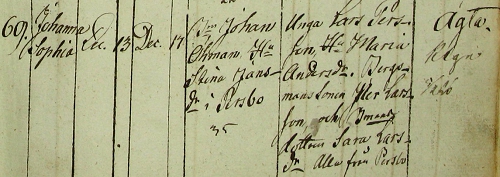 69. Johanna Sophia
Dec. 13 Dec. 17.
Johan
Öhman. Hu
Stina Jans-
dr i Persbo
35
Unga Lars Pers-
son, Hu Maria
Andersdr. Bergs-
mans Sonen Per Lars-
son, och
dottern Sara Lars-
dr Alla från Persbo
Ägta.